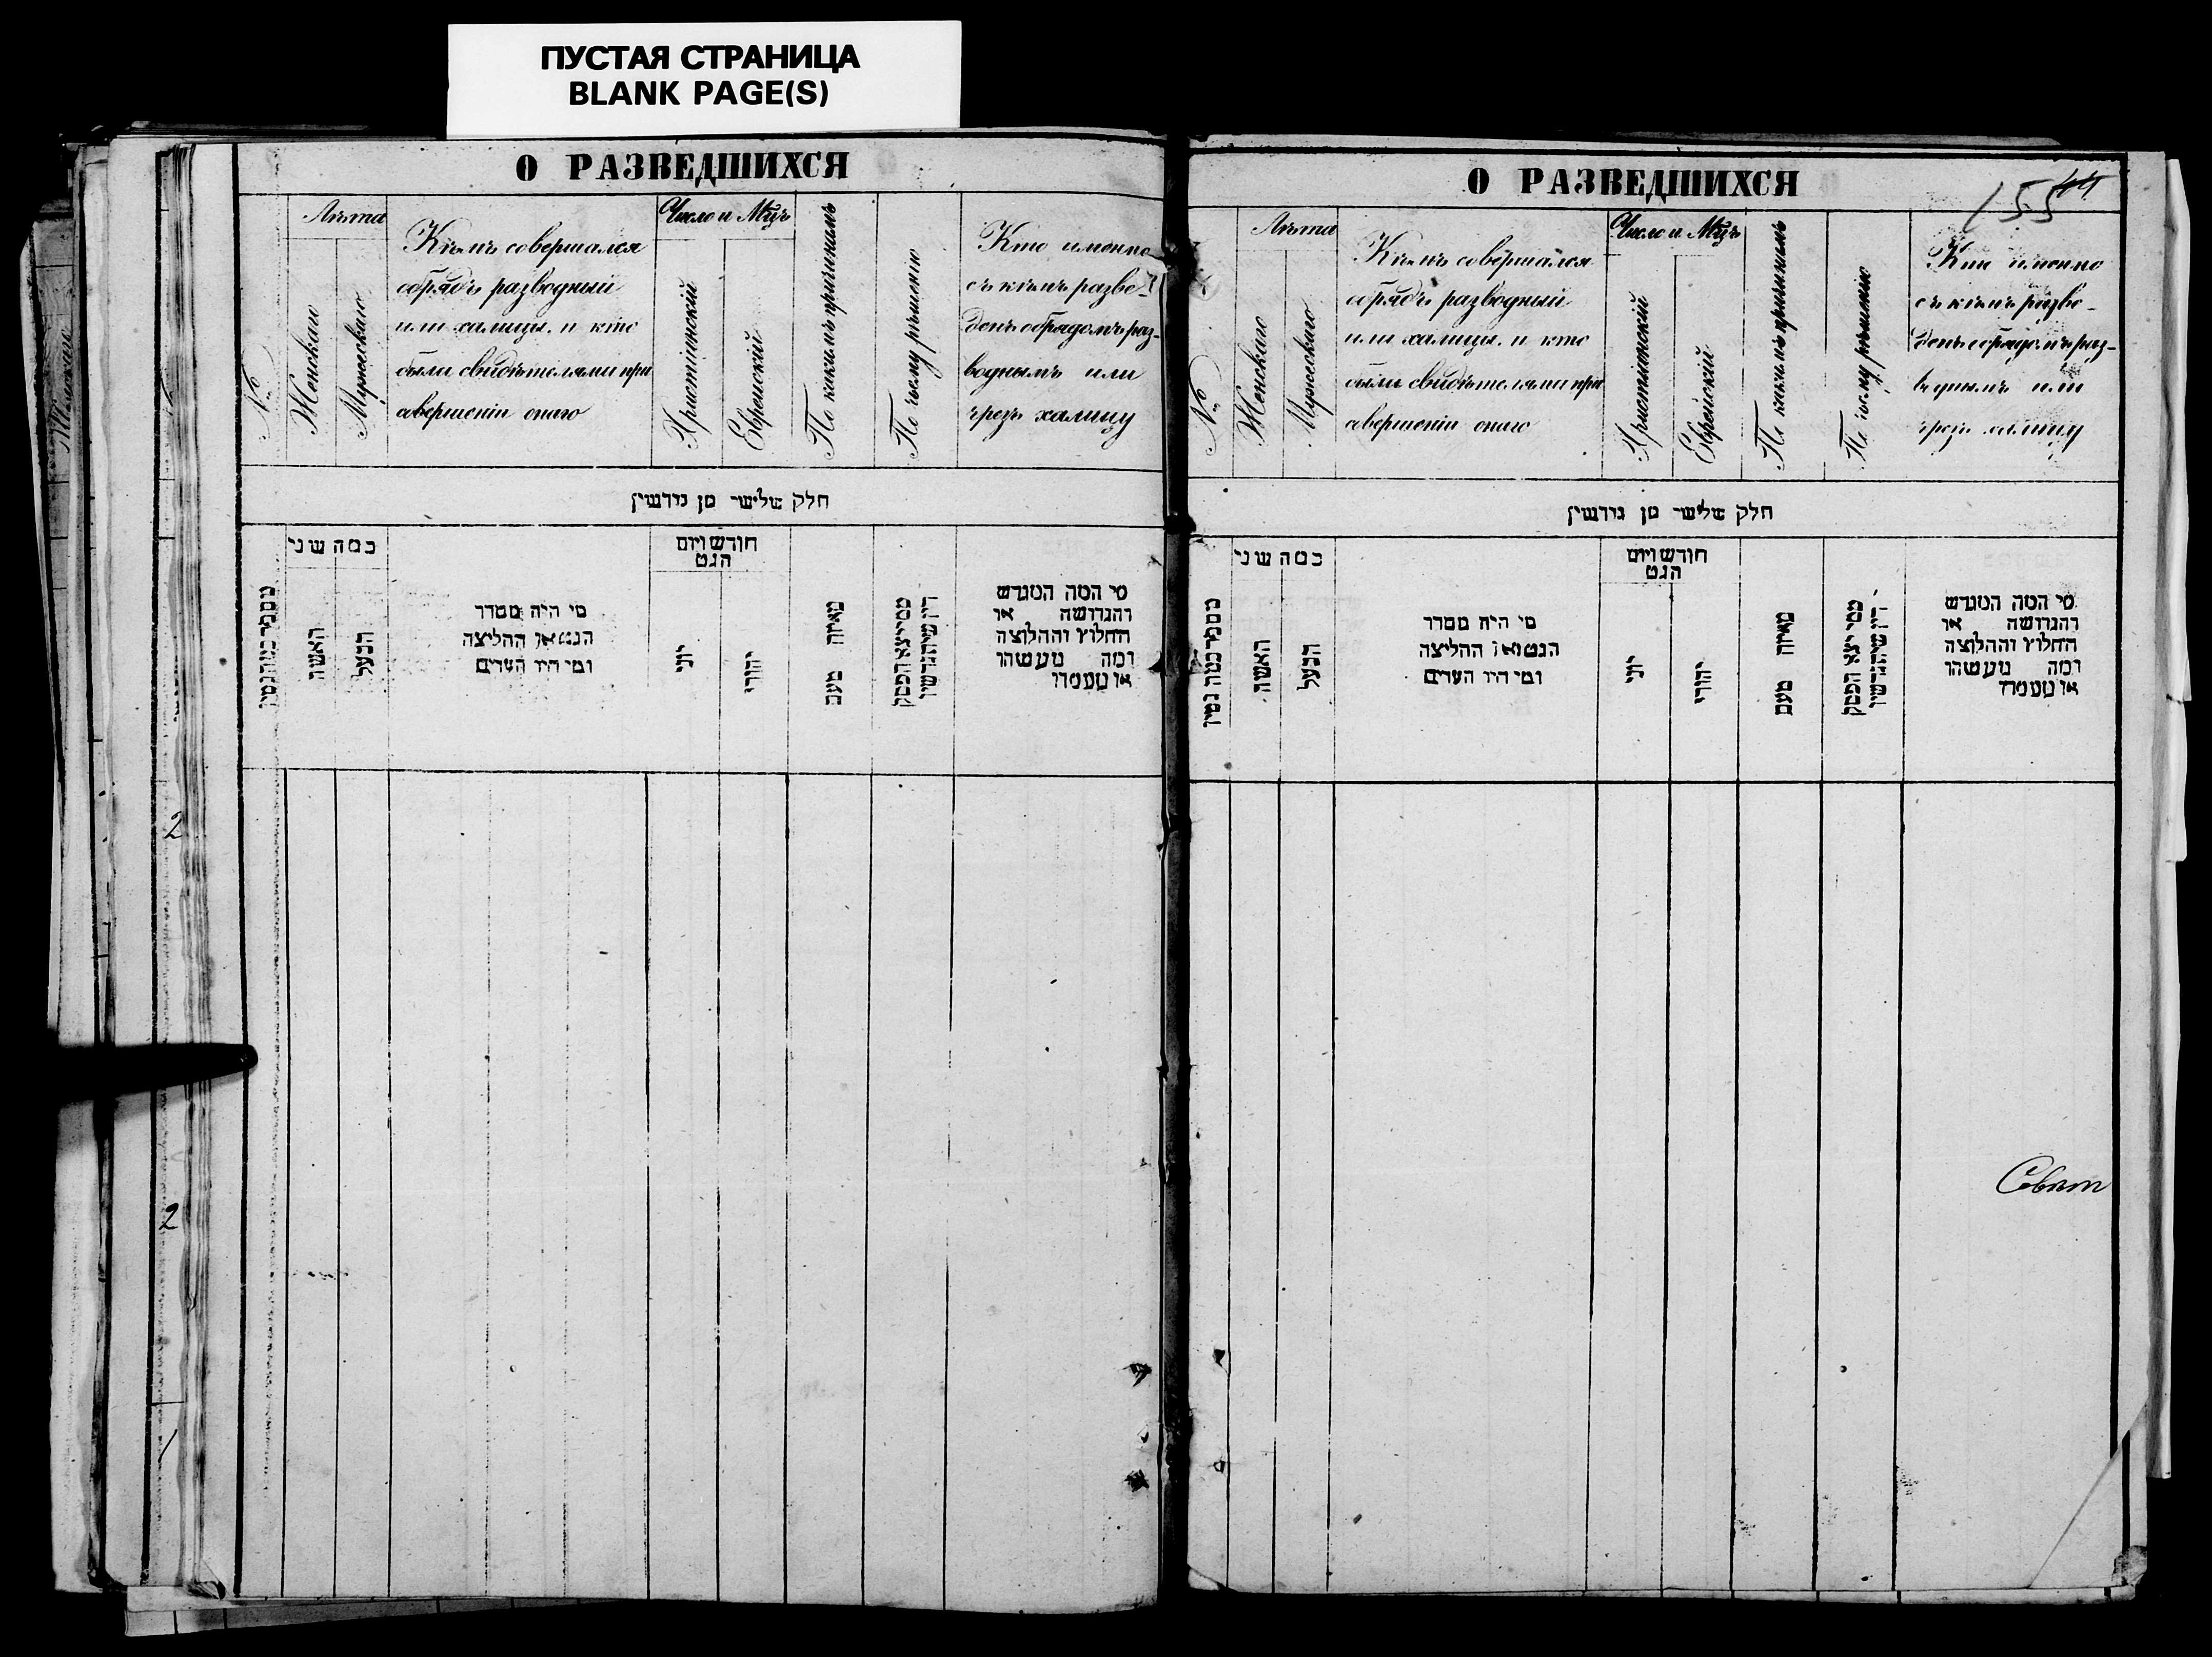 ПУСТАЯ СТРАНИЦА
BLANK PAGE(S)
О РАЗВЕДШИХСЯ
№
Лѣта
Женскаго
Мужескаго
Кѣмъ совершался
обрядъ разводный
или халицы, и кто
были свидѣтелями при
совершеніи онаго
Число и Мцъ
Христіянскій
Еврейскій
По какимъ причинамъ
По чьему рѣшенію
Кто именно
съ кѣмъ разве-
денъ обрядомъ раз-
воднымъ или
чрезъ халицу
חלק שלישי מן גירושין
מספר כמה גטין
כמה שני
האשה
הבעל
מי היה מסדר
הגט או החליצה
ומי היו העדים
חודש ויום
הגט
יוני
יהודי
מאיזה טעם
ממי יצא הפסק
דין שיתגרשו
מי המה המגרש
והגרושה או
החלוץ והחלוצה
ומה מעשהו
או מעמדו
О РАЗВЕДШИХСЯ
44
155
№
Лѣта
Женскаго
Мужескаго
Кѣмъ совершался
обрядъ разводный
или халицы, и кто
были свидѣтелями при
совершеніи онаго
Число и Мцъ
Христіянскій
Еврейскій
По какимъ причинамъ
По чьему рѣшенію
Кто именно
съ кѣмъ разве-
денъ обрядомъ раз-
воднымъ или
чрезъ халицу
חלק שלישי מן גירושין
מספר כמה גטין
כמה שני
האשה
הבעל
מי היה מסדר
הגט או החליצה
ומי היו העדים
חודש ויום
הגט
יוני
יהודי
מאיזה טעם
ממי יצא הפסק
דין שיתגרשו
מי המה המגרש
והגרושה או
החלוץ והחלוצה
ומה מעשהו
או מעמדו
2
2
1